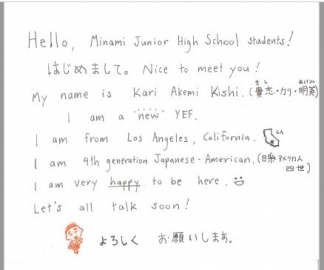 Hello, Minami Junior High School students!
はじめまして。 Nice to meet you!
My name is Kari Akemi Kishi. (貴志・カリ・明美)
I am a "new" YEF.
I am from Los Angeles, California. CA
I am 4th generation Japanese-American. (日系アメリカ人 四世)
I am very happy to be here.
Let's all talk soon!
よろしく お願いします。